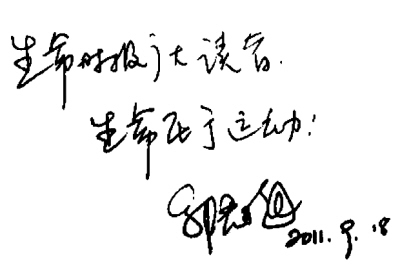 生命时报广大读者.
生命在于运动!
2011.9.18